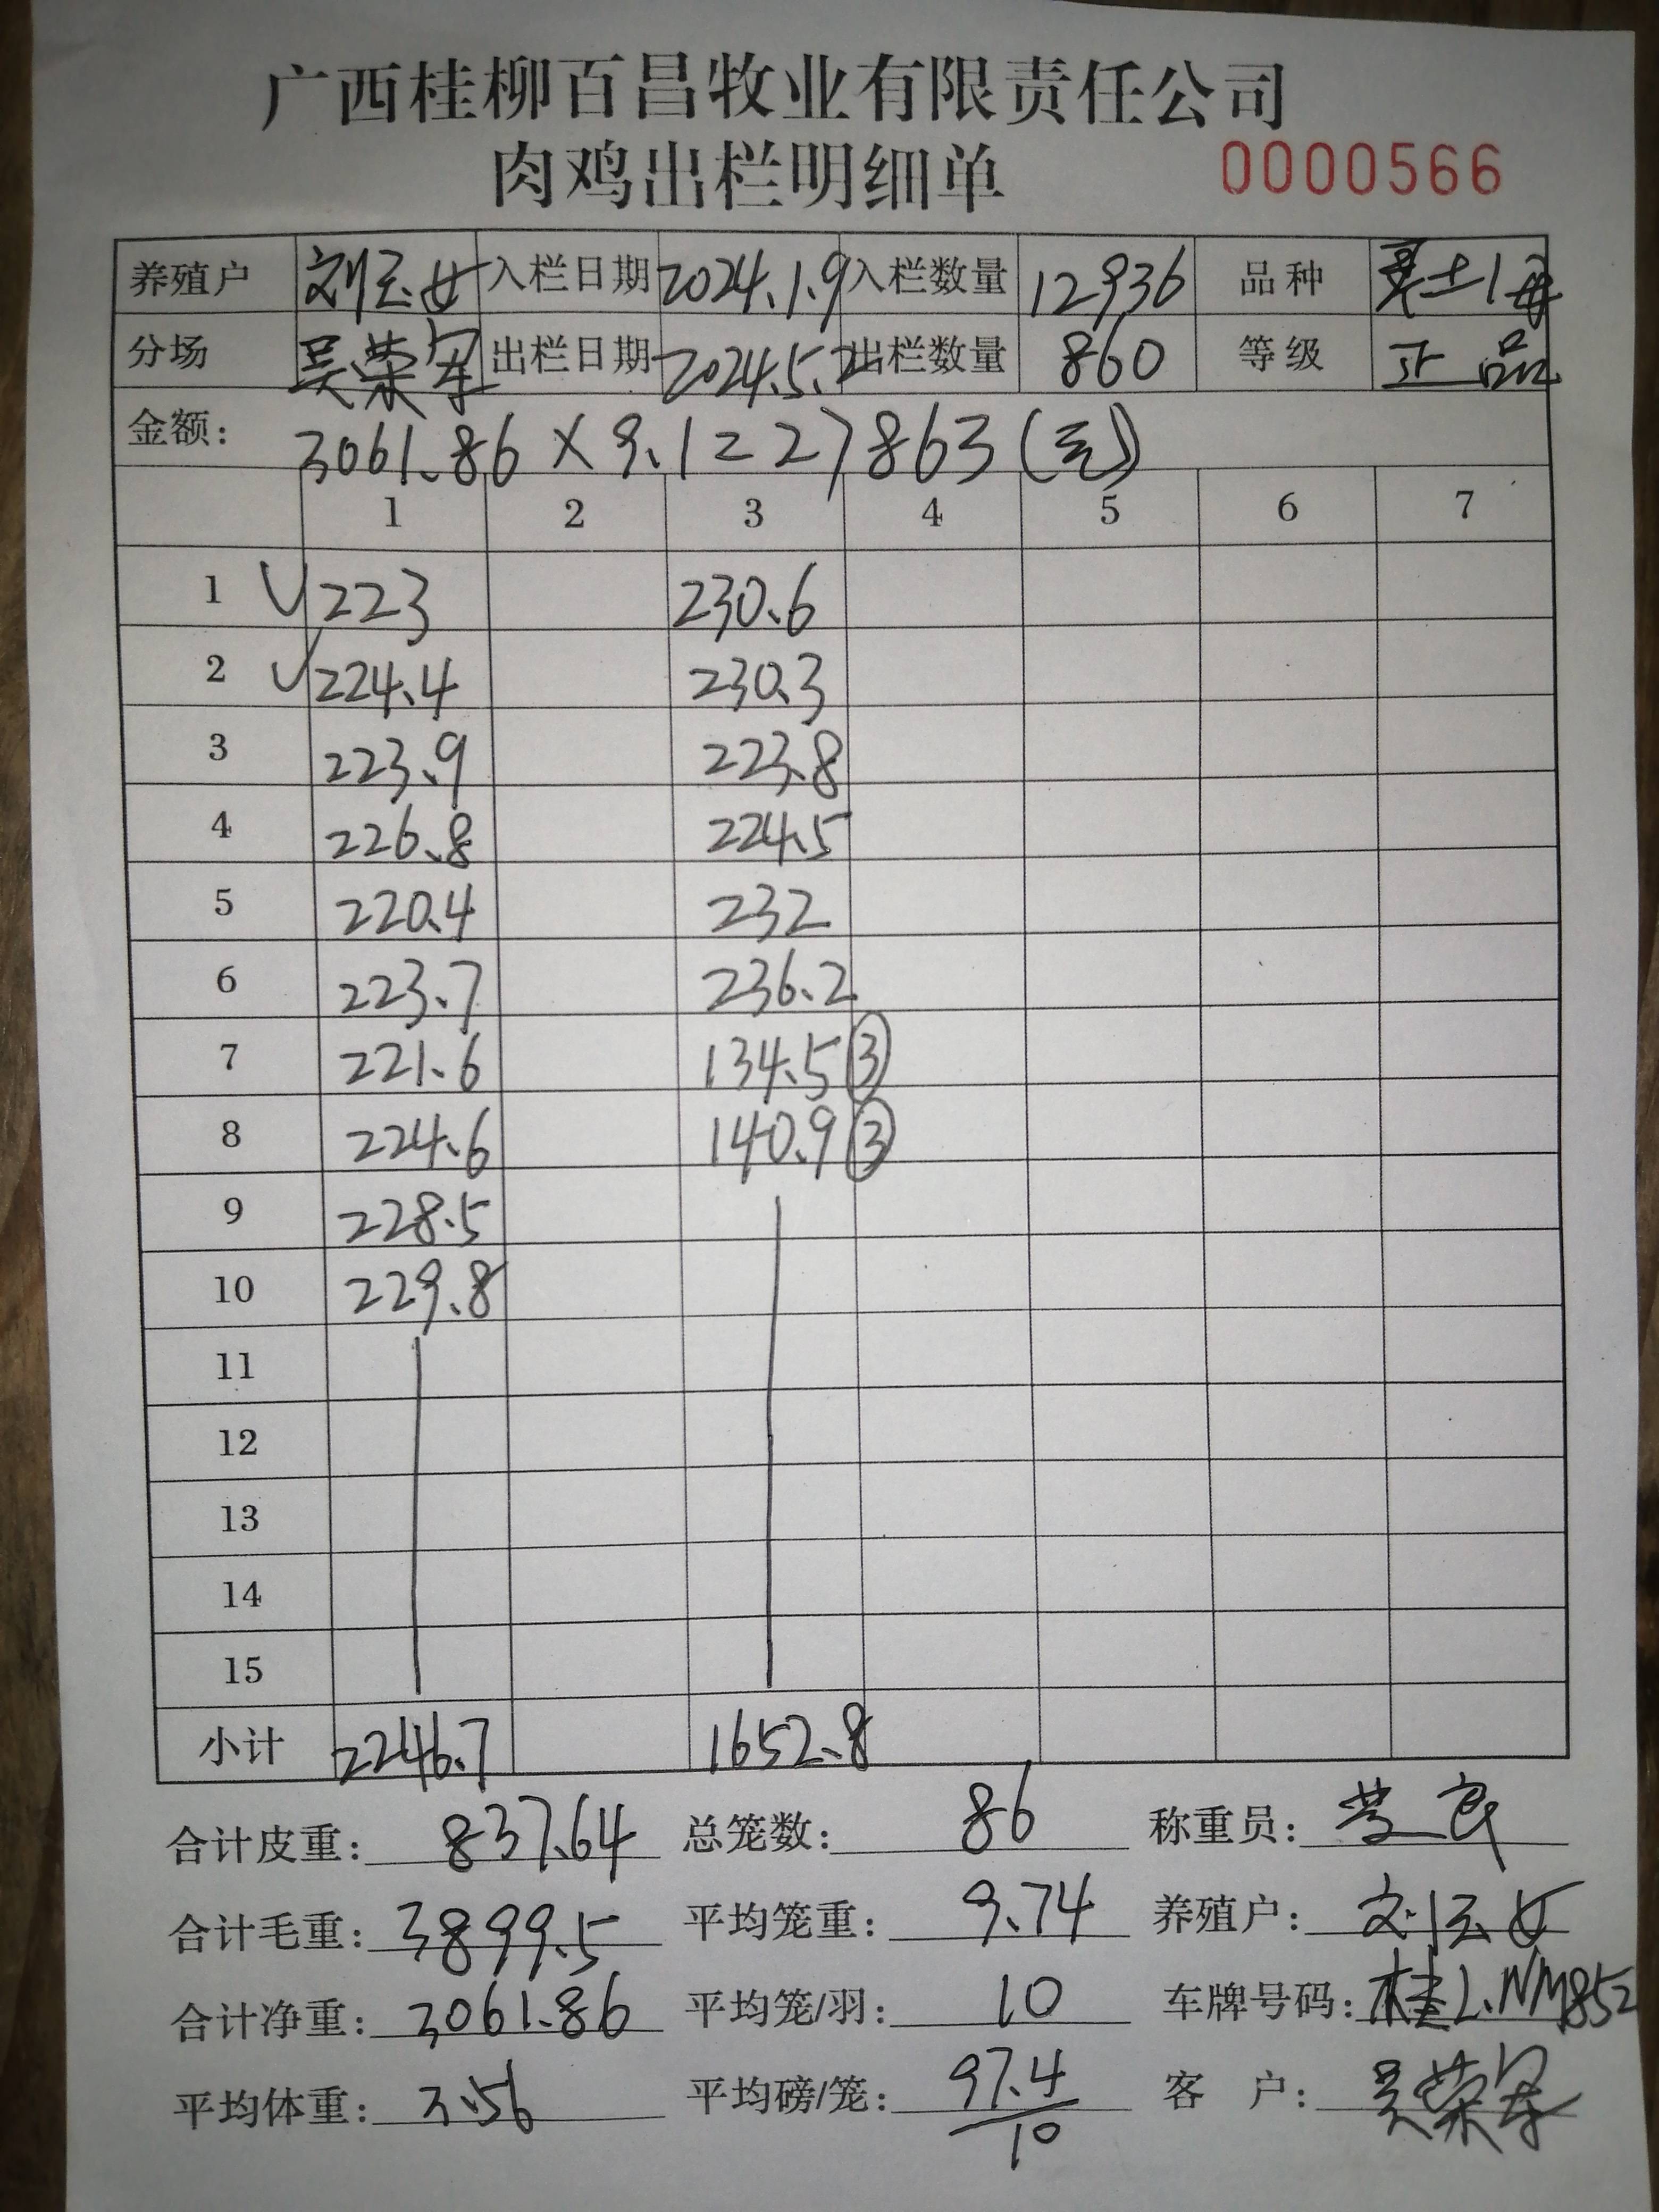 广西桂柳百昌牧业有限责任公司
肉鸡出栏明细单 0000566
养殖户 刘玉女 入栏日期 2024.1.9 入栏数量 12936 品种
分场 吴荣军 出栏日期 2024.5.2 出栏数量 860 等级 正品
金额: 3061.86×9.1=27863(元)
1 2 3 4 5 6 7
1 √223 230.6
2 √224.4 230.3
3 223.9 223.8
4 226.8 224.5
5 220.4 232
6 223.7 236.2
7 221.6 134.5③
8 224.6 140.9③
9 228.5
10 229.8
11
12
13
14
15
小计 2246.7 1652.8
合计皮重: 837.64 总笼数: 86 称重员:
合计毛重: 3899.5 平均笼重: 9.74 养殖户: 刘玉女
合计净重: 3061.86 平均笼/羽: 10 车牌号码: 桂L.NM852
平均体重: 3.56 平均磅/笼: 97.4/10 客 户: 吴荣军